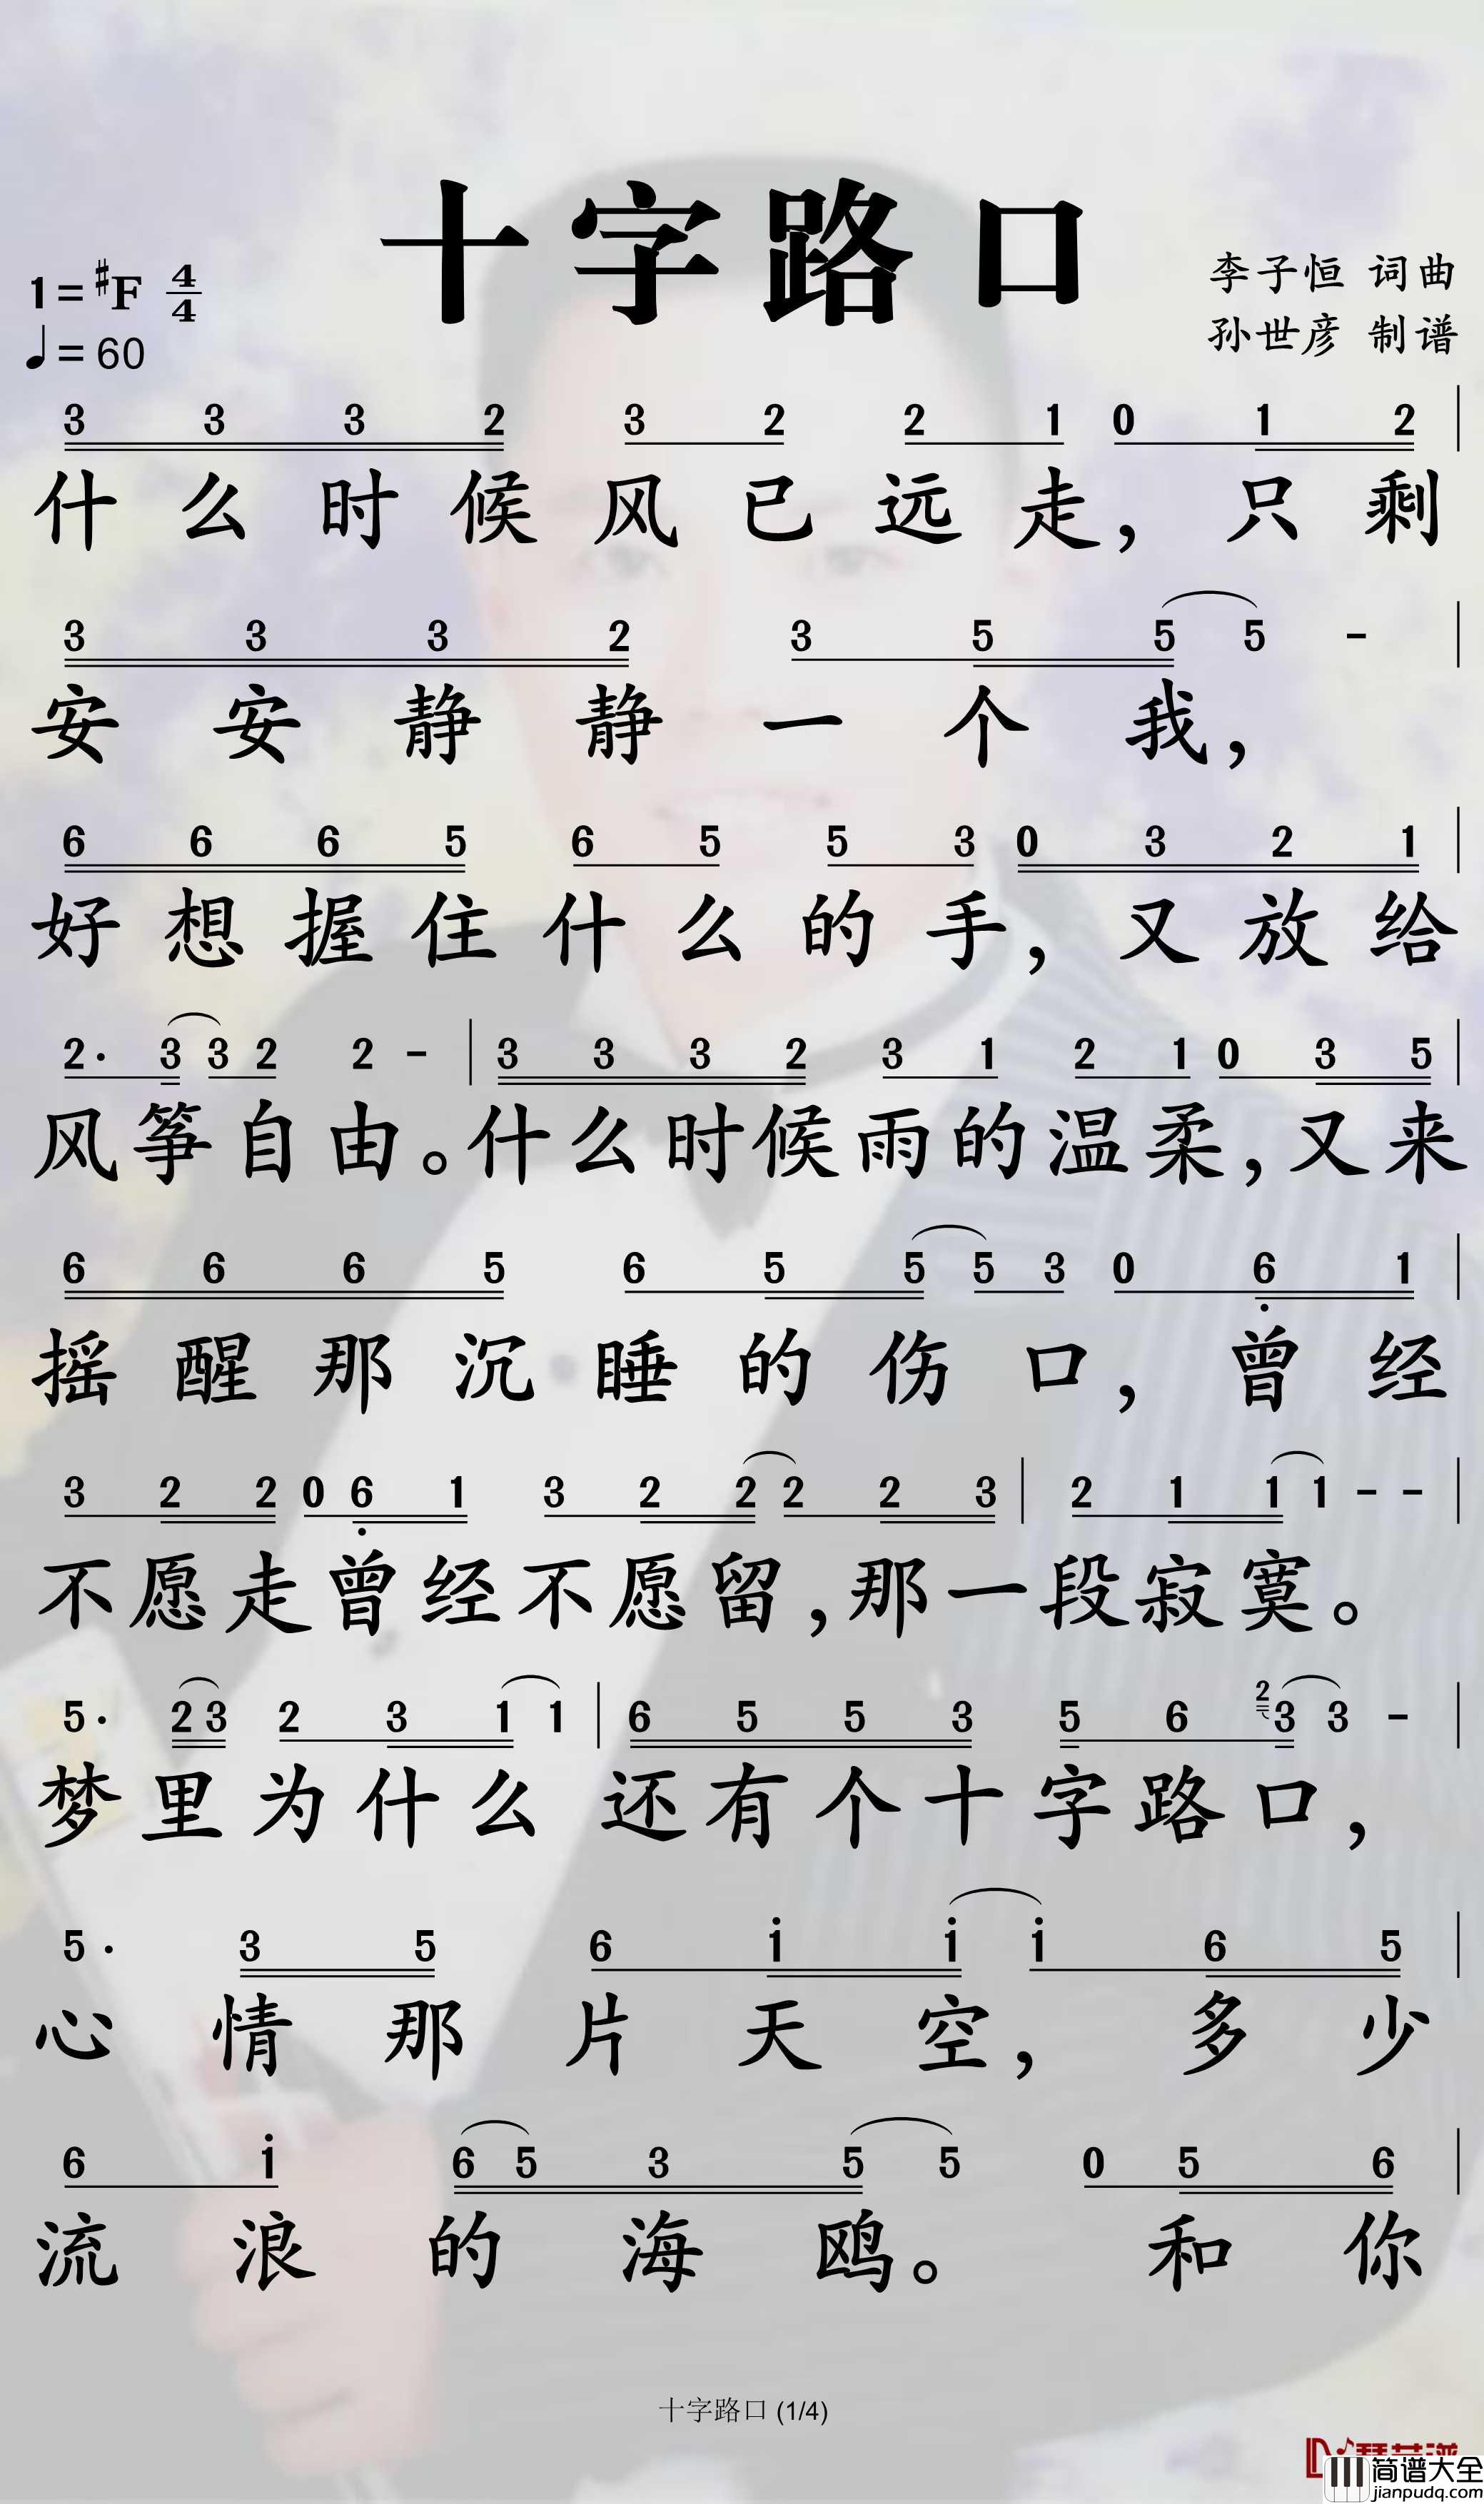 十字路口
1=#F 4/4
♩=60
李子恒 词曲
孙世彦 制谱
3 3 3 2 3 2 2 1 0 1 2 |
什么时候风已远走，只剩
3 3 3 2 3 5 5 5 - |
安安静静一个我，
6 6 6 5 6 5 5 3 0 3 2 1 |
好想握住什么的手，又放给
2· 3 3 2 2 - | 3 3 3 2 3 1 2 1 0 3 5 |
风筝自由。什么时候雨的温柔，又来
6 6 6 5 6 5 5 5 3 0 6̣ 1 |
摇醒那沉睡的伤口，曾经
3 2 2 0 6̣ 1 3 2 2 2 2 3 | 2 1 1 1 - - |
不愿走曾经不愿留，那一段寂寞。
5· 2 3 2 3 1 1 | 6 5 5 3 5 6 2 3 3 - |
梦里为什么还有个十字路口，
5· 3 5 6 1̇ 1̇ 1̇ 6 5 |
心情那片天空，多少
6 1̇ 6 5 3 5 5 0 5 6 |
流浪的海鸥。和你
十字路口 (1/4)
简谱大全
jianpudq.com